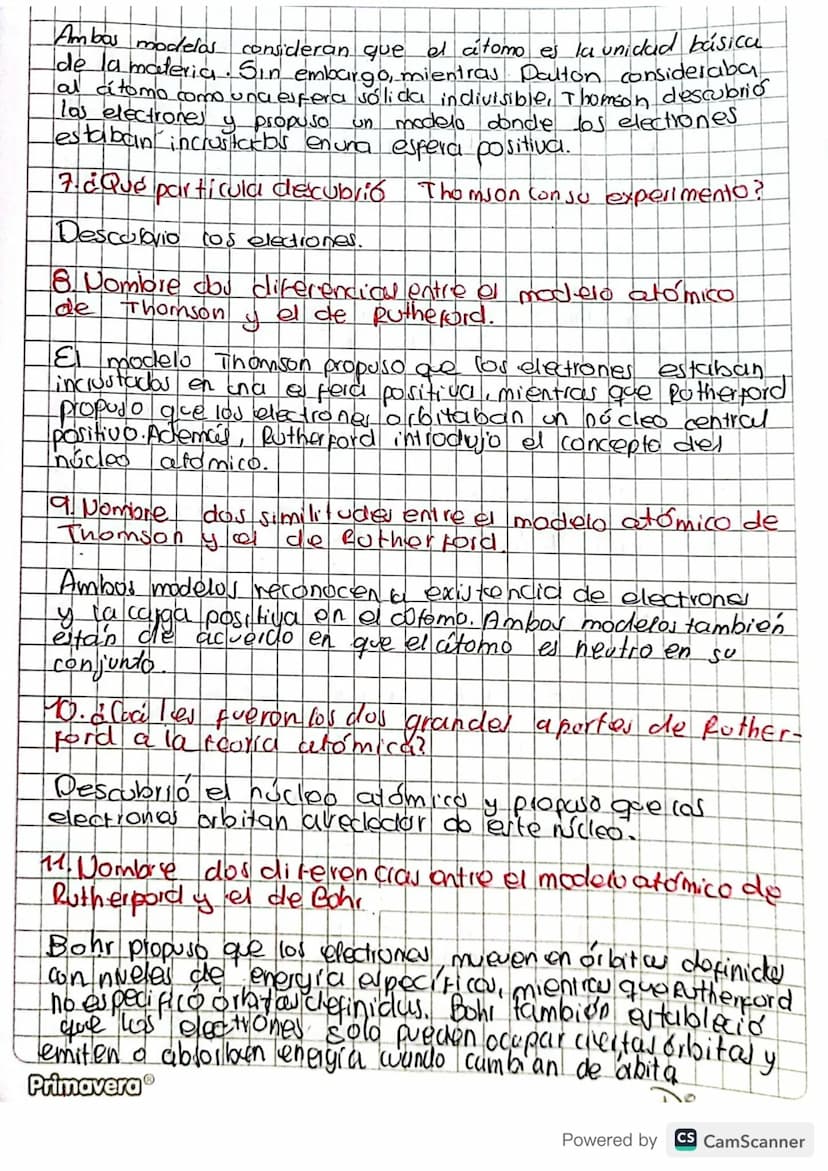 Ambos modelos consideran que el átomo es la unidad básica
de la materia. Sin embargo, mientras Dalton consideraba
al átomo como una esfera sólida indivisible, Thomson descubrió
los electrones y propuso un modelo donde los electrones
estaban incrustados en una esfera positiva.
7. ¿Qué partícula descubrió Thomson con su experimento?
Descubrio los electrones.
8. Nombre dos diferencias entre el modelo atómico
de Thomson y el de Rutherford.
El modelo Thomson propuso que los electrones estaban
incrustados en una esfera positiva, mientras que Rotherford
propuso que los electrones orbitaban un núcleo central
positivo. Además, Rutherford introdujo el concepto del
núcleo atómico.
9. Nombre dos similitudes entre el modelo atómico de
Thomson y el de Rotherford.
Ambos modelos reconocen la existencia de electrones
y la carga positiva en el átomo. Ambos modelos tambień
están de acuerdo en que el átomo es neutro en su
conjunto.
10. ¿Cuáles fueron los dos grandes aportes de Ruther-
ford a la teoría atómica?
Descubrió el núcleo atómico y propuso que los
electrones orbitan alrededor do este núcleo.
11. Nombre dos diferencias entre el modelo atómico de
Rutherford y el de Bohr.
Bohr propuso que los electrones mueven en órbitas definidas
con niveles de energía específicas, mientras que Rutherford
no especificó órbitas definidas. Bohr también estableció
que los electrones solo pueden ocupar ciertas órbitas y
emiten o absorben energía cuando cambian de orbita
Primavera®
Powered by CS CamScanner